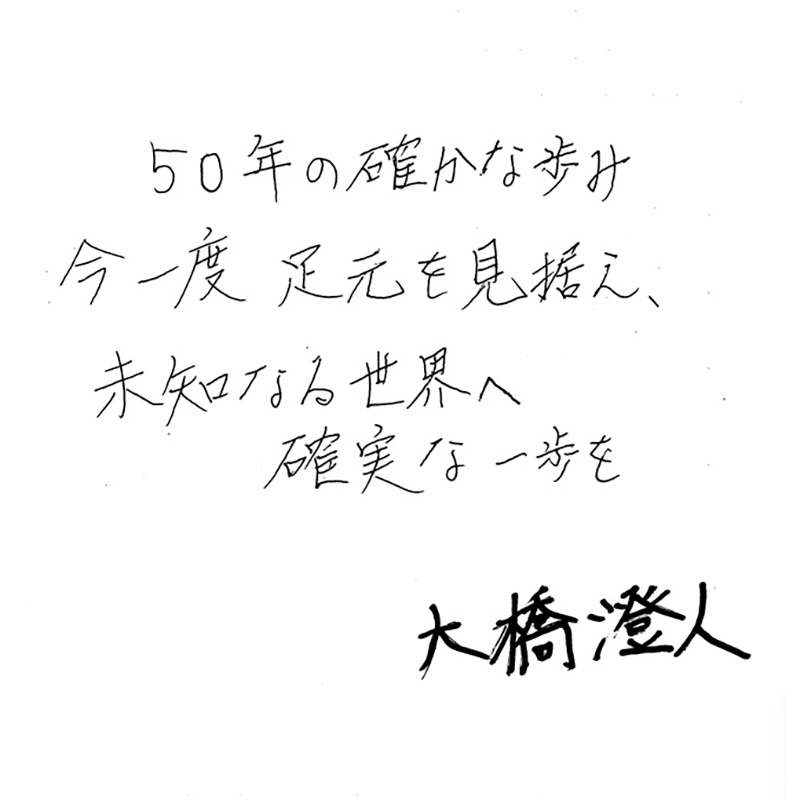 50年の確かな歩み
今一度 足元を見据え、
未知なる世界へ
確実な一歩を
大橋澄人